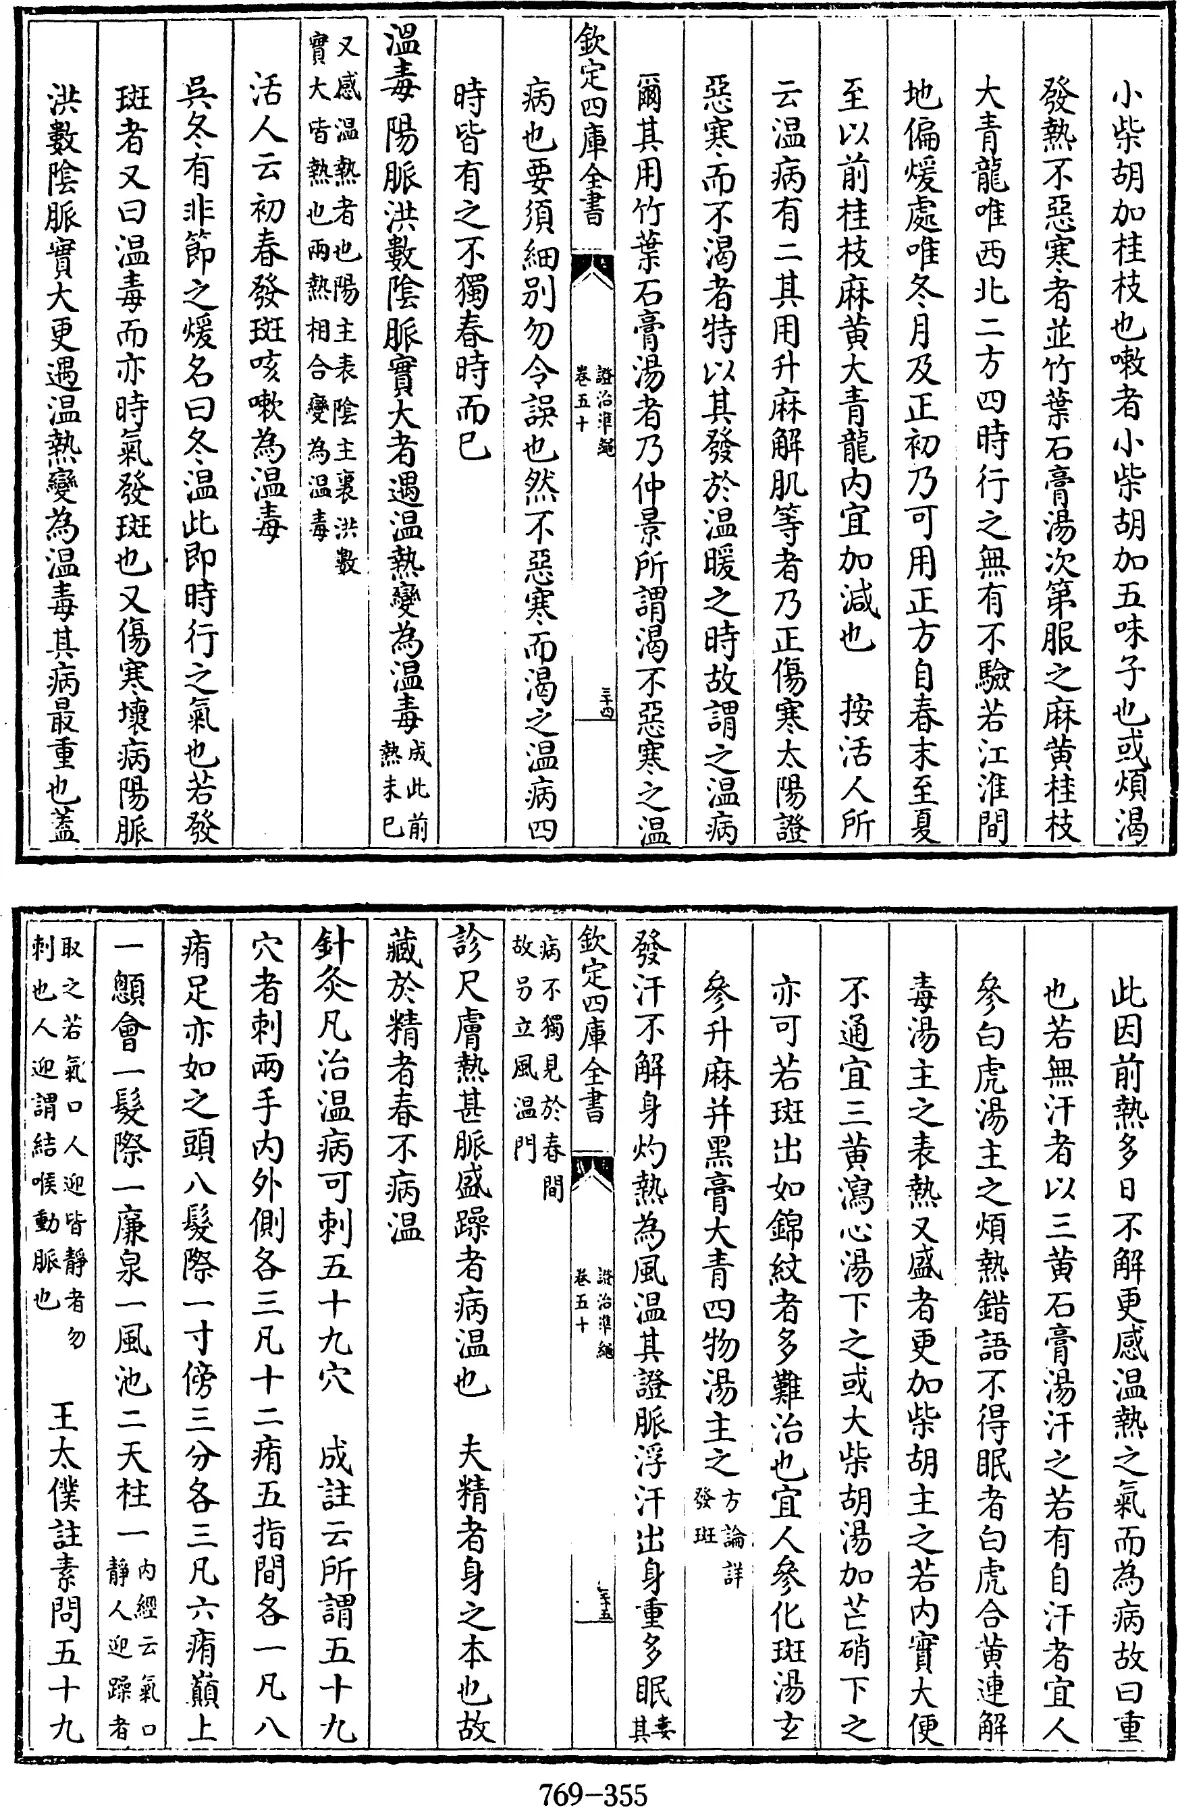 小柴胡加桂枝也嗽者小柴胡加五味子也或煩渴
發熱不惡寒者並竹葉石膏湯次第服之麻黄桂枝
大青龍唯西北二方四時行之無有不驗若江淮間
地偏煖處唯冬月及正初乃可用正方自春末至夏
至以前桂枝麻黄大青龍内宜加減也　按活人所
云温病有二其用升麻解肌等者乃正傷寒太陽證
惡寒而不渴者特以其發於温暖之時故謂之温病
爾其用竹葉石膏湯者乃仲景所謂渴不惡寒之温
欽定四庫全書
證治準繩
卷五十
三十四
病也要須細别勿令誤也然不惡寒而渴之温病四
時皆有之不獨春時而已
溫毒陽脈洪數陰脈實大者遇温熱變為温毒
成此前
熱未已
又感温熱者也陽主表陰主裏洪數
實大皆熱也兩熱相合變為温毒
活人云初春發斑咳嗽為温毒
吳冬有非節之煖名曰冬温此即時行之氣也若發
斑者又曰温毒而亦時氣發斑也又傷寒壞病陽脈
洪數陰脈實大更遇温熱變為温毒其病最重也蓋
此因前熱多日不解更感温熱之氣而為病故曰重
也若無汗者以三黄石膏湯汗之若有自汗者宜人
參白虎湯主之煩熱錯語不得眠者白虎合黄連解
毒湯主之表熱又盛者更加柴胡主之若内實大便
不通宜三黄瀉心湯下之或大柴胡湯加芒硝下之
亦可若斑出如錦紋者多難治也宜人參化斑湯玄
參升麻并黑膏大青四物湯主之
方論詳
發斑
發汗不解身灼熱為風温其證脈浮汗出身重多眠
妻
其
欽定四庫全書
證治準繩
卷五十
三十五
病不獨見於春間
故另立風温門
診尺膚熱甚脈盛躁者病温也　夫精者身之本也故
藏於精者春不病温
針灸凡治温病可刺五十九穴　成註云所謂五十九
穴者刺兩手内外側各三凡十二痏五指間各一凡八
痏足亦如之頭八髮際一寸傍三分各三凡六痏巔上
一顖會一髮際一廉泉一風池二天柱一
内經云氣口
靜人迎躁者
取之若氣口人迎皆靜者勿
刺也人迎謂結喉動脈也
王太僕註素問五十九
769-355